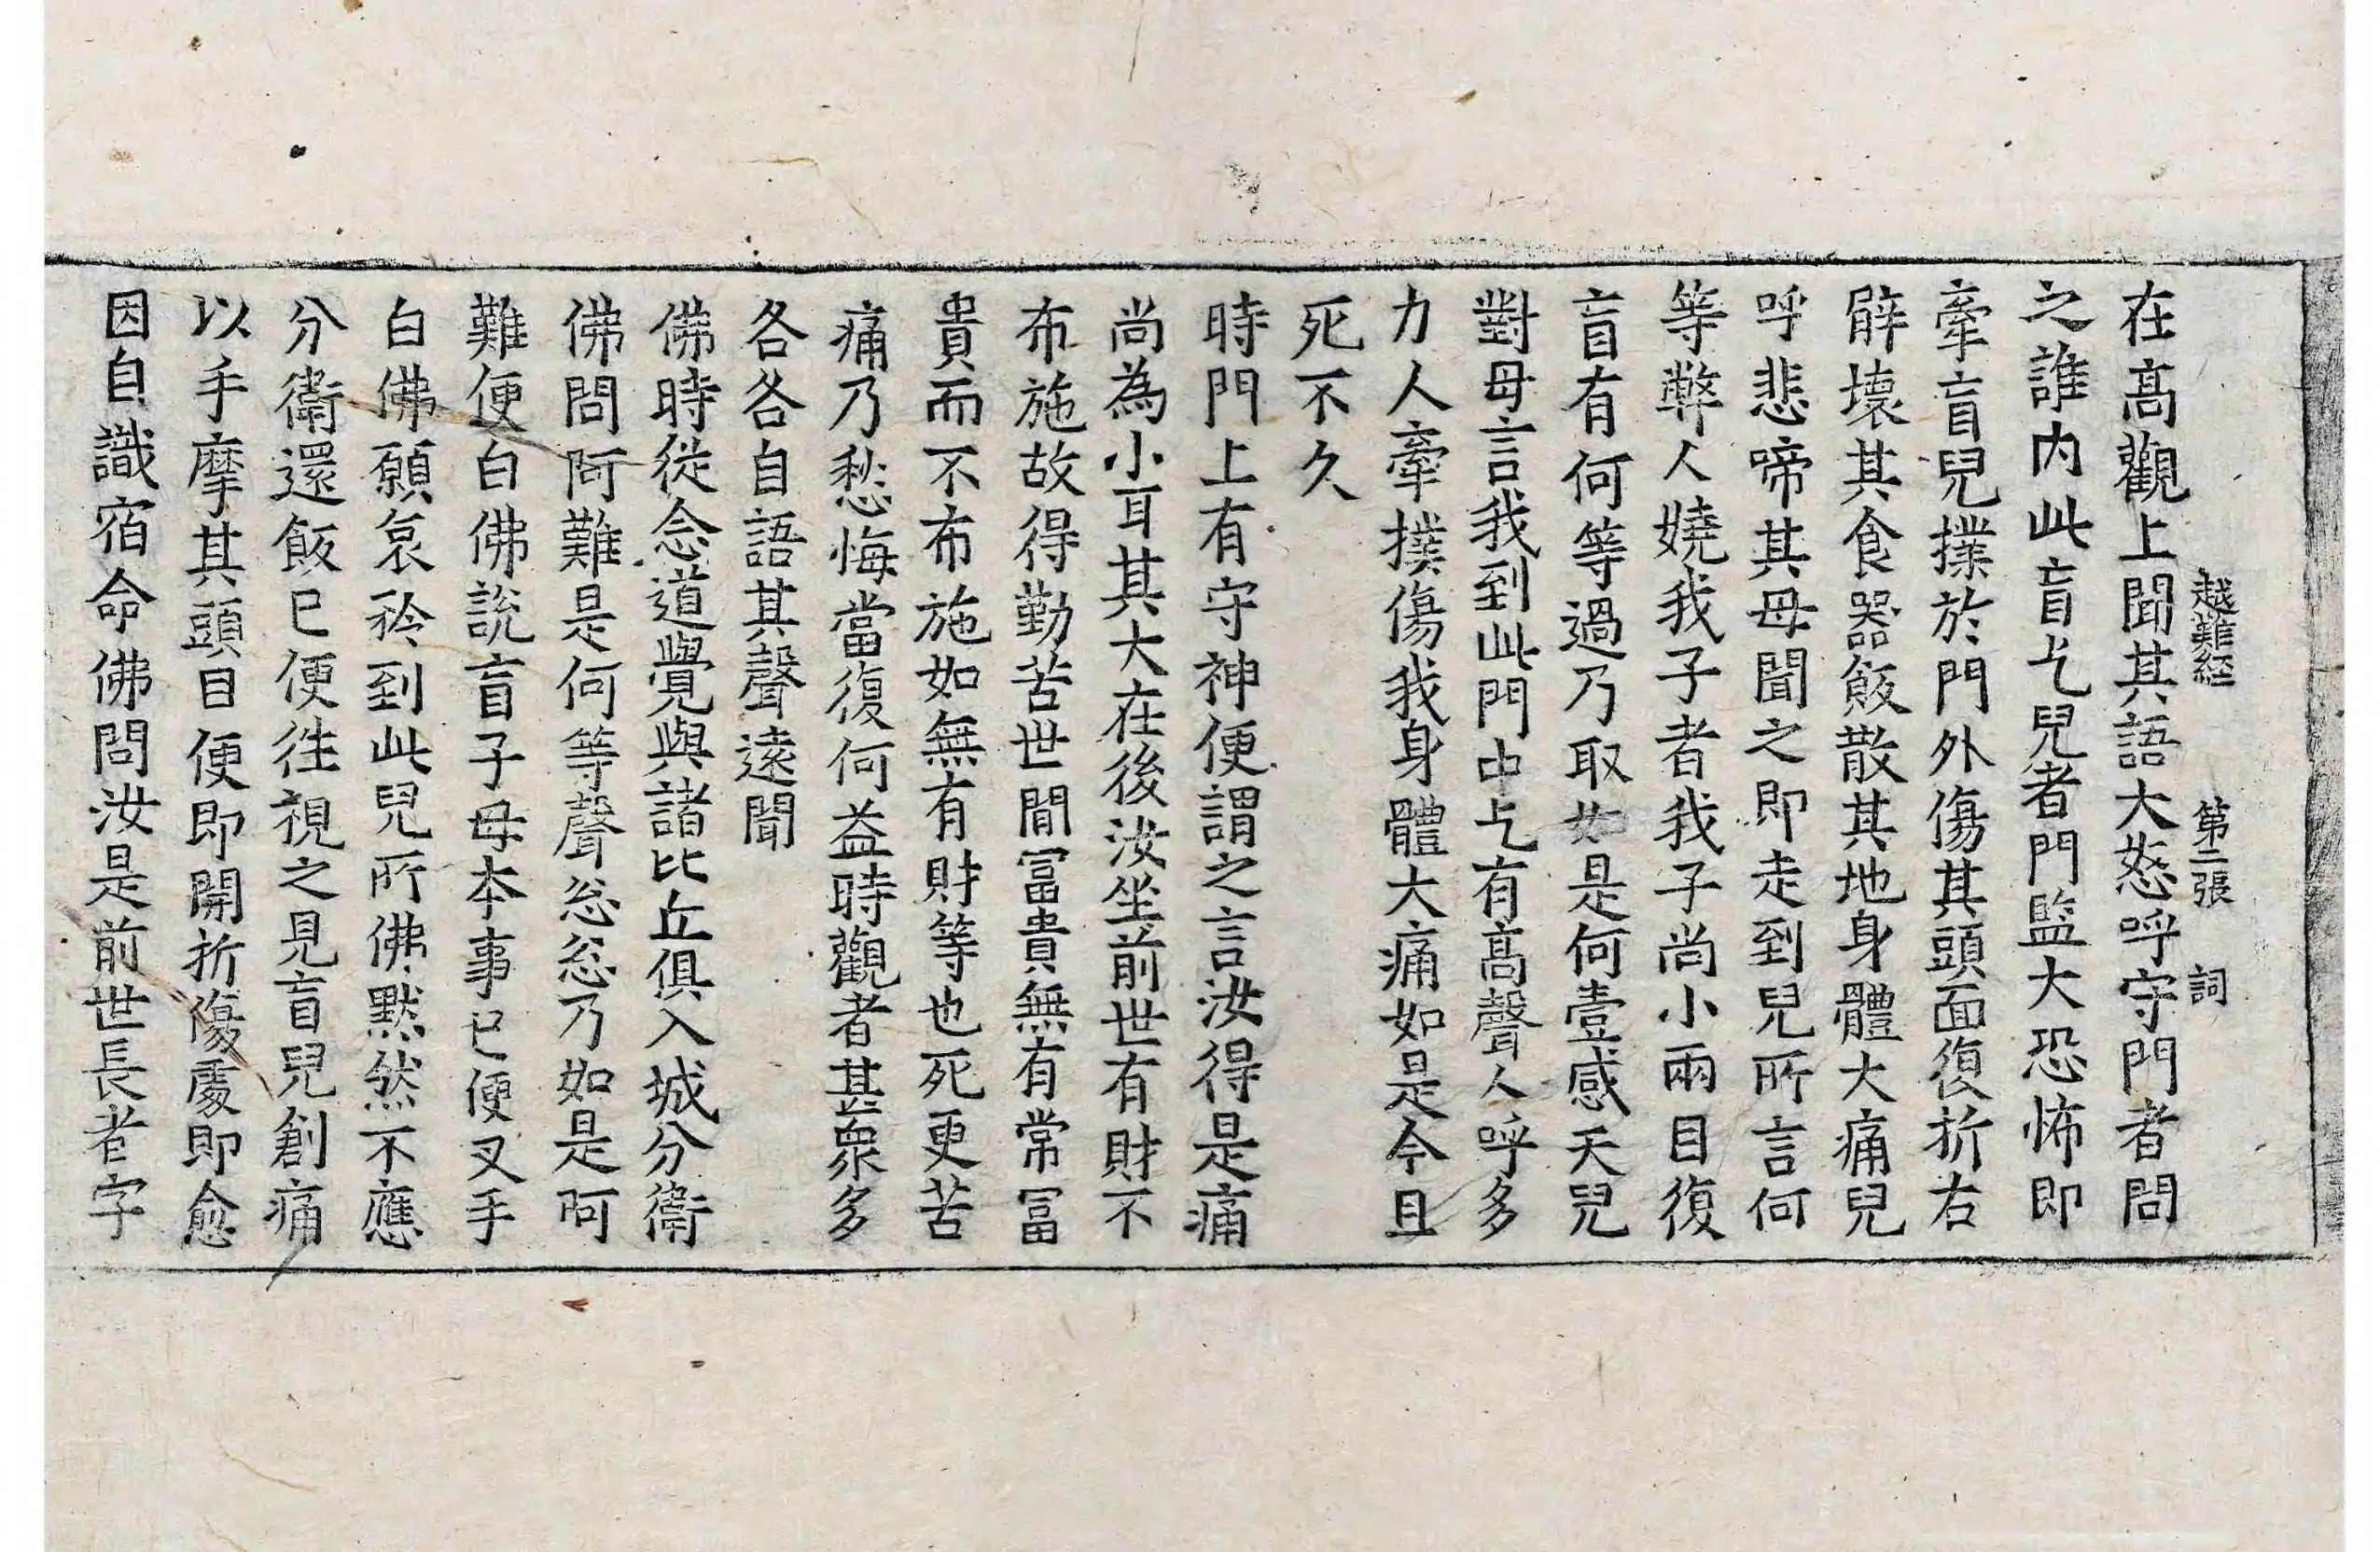 越難経 第二張 詞
在髙觀上聞其語大怒呼守門者問
之誰内此盲乞兒者門監大恐怖即
牽盲兒撲於門外傷其頭面復折右
臂壞其食器飯散其地身體大痛兒
呼悲啼其母聞之即走到兒所言何
等弊人嬈我子者我子尚小兩目復
盲有何等過乃取如是何壹感天兒
對母言我到此門中乞有髙聲人呼多
力人牽撲傷我身體大痛如是今且
死不久
時門上有守神便謂之言汝得是痛
尚為小耳其大在後汝坐前世有財不
布施故得勤苦世間冨貴無有常冨
貴而不布施如無有財等也死更苦
痛乃愁悔當復何益時觀者甚衆多
各各自語其聲遠聞
佛時從念道覺與諸比丘俱入城分衛
佛問阿難是何等聲忩忩乃如是阿
難便白佛說盲子母本事已便叉手
白佛願哀矜到此兒所佛默然不應
分衛還飯已便徃視之見盲兒創痛
以手摩其頭目便即開折傷處即愈
因自識宿命佛問汝是前世長者字